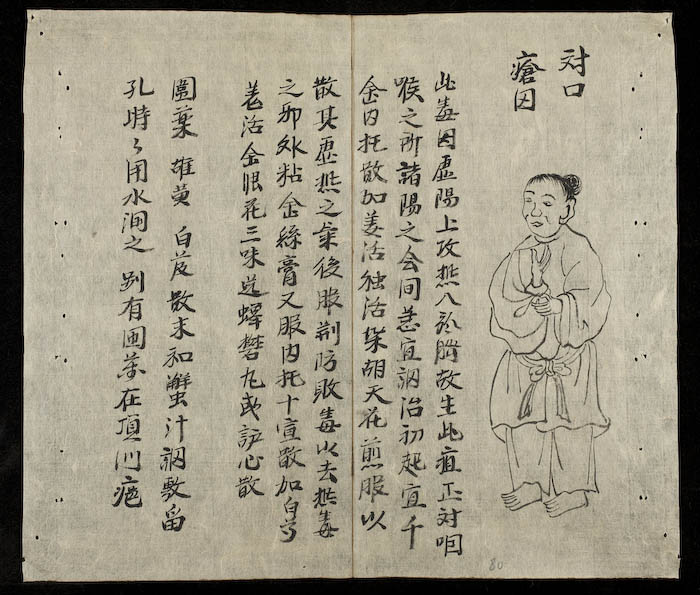 対口
瘡図
此毒因虚陽上攻熱入於脳故生此疽正対咽
喉之所諸陽之会問恙宜調治初起宜千
金内托散加羌活独活柴胡天花煎服以
散其虚熱之氣後服荆防敗毒以去熱毒
之邪外粘金絲膏又服内托十宣散加白芍
羌活金銀花三味送蟬礬丸或護心散
圍薬 雄黄 白芨 散末和蟹汁調敷留
孔時々用水潤之 別有圍薬在頂門疽
80